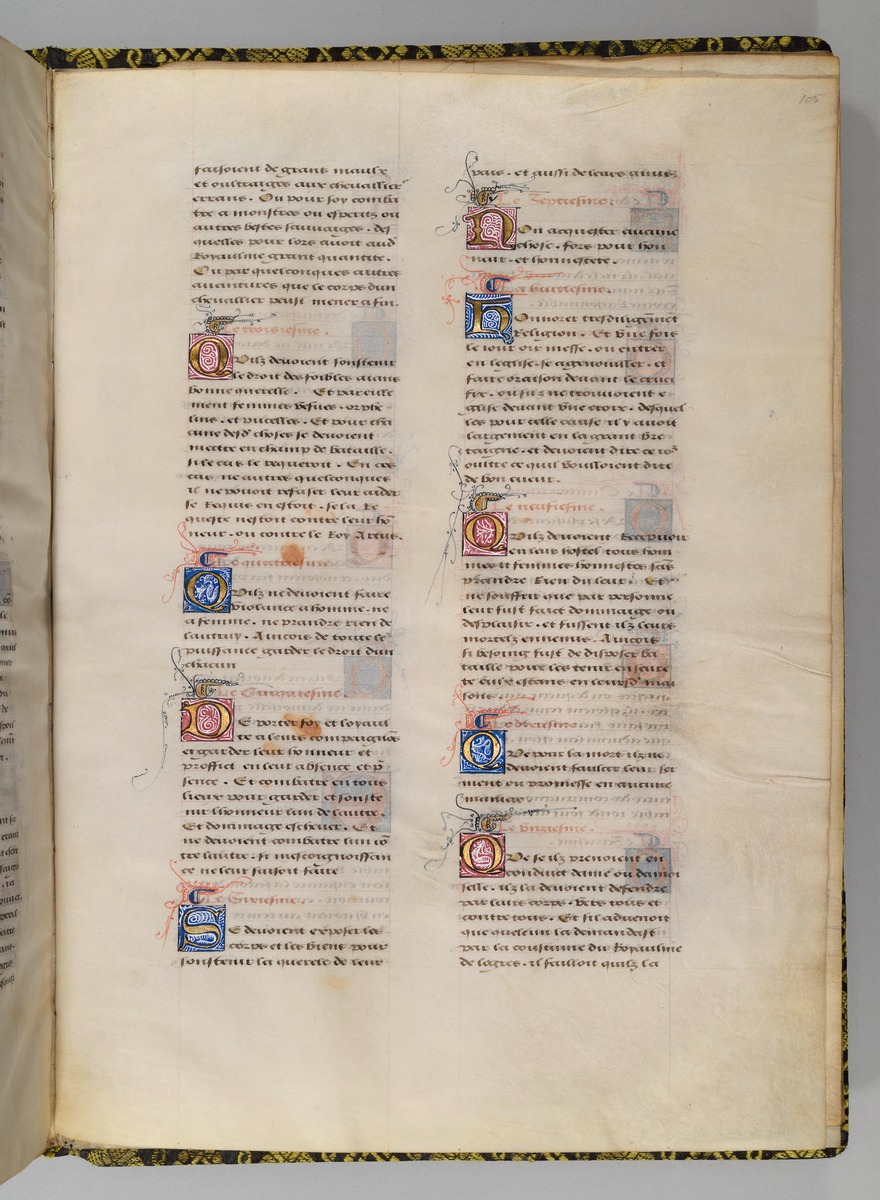 105
faisoient de grans maulx
et oultraiges aux chevalliers
errans. Ou pour soy comba
tre a monstres ou esperitz ou
autres bestes sauvaiges. des
quelles pour lors avoit aud
Royaulme grant quantite.
Ou par quelconques autres
avantures que le corps dun
chevallier peust mener a fin.
Le troisiesme.
Quilz devoient soustenir
le droit des foibles aians
bonne querelle. Et pareille
ment femmes vefues. orphe
lins. et pucelles. Et pour cha
cune desd choses se devoient
mettre en champ de bataille.
si le cas le requeroit. En ces
cas ne autres quelconques
il ne povoit refuser leur aider
se Requis en estoit. se la Re
queste nestoit contre leur hon
neur. ou contre le Roy Artus.
Le quatriesme
Quilz ne devoient faire
violance a homme. ne
a femme. ne prandre rien de
lautruy. Aincois de toute leur
puissance garder le droit dun
chacun
Le Cinquiesme.
De porter foy et loyaul
te a leurs compeignons
et garder leur honneur et
proffict en leur absence et pre
sence. Et combatre en tous
lieux pour garder et souste
nir lhonneur lun de lautre.
Et dommaige eschever. Et
ne devoient combatre lun con
tre lautre. si mescongnoissan
ce ne leur faisoit faire
Le Sixiesme.
Se devoient exposer les
corps et les biens pour
soustenir la querele de leur
pais. et aussi de leurs amis
Le Septiesme
Non acquester aucune
chose. fors pour hon
neur. et honnestete.
Le huitiesme.
Honnorer tresdiligemment
Religion. Et une fois
le jour oir messe. ou entrer
en leglise. se agenouiller. et
faire oraison devant le cruci
fix. ou silz ne trouvoient e
glise devant une croix. desquel
les pour celle cause il y avoit
largement en la grant bre
taigne. et devoient dire ce jour
oultre ce quil vouloient dire
de bon cueur.
Le neufiesme.
Quilz devoient Recepvoir
en leur hostel tous hom
mes et femmes honnestes sans
prendre Rien du leur. Et
ne souffrir que par personne
leur fust faict dommaige ou
desplaisir. et fussent ilz leurs
mortelz ennemis. Aincois
si besoing fust de disposer ba
taille pour les tenir en seure
te eulx estans en leursd. mai
sons.
Le dixiesme
Que pour la mort ilz ne
devoient faulcer leur ser
ment ou promesse en aucune
maniere
Le unziesme.
Que se ilz prenoient en
conduict dame ou damoi
selle. ilz la devoient defendre
par leurs corps. vers tous et
contre tous. Et sil advenoit
que quelcun la demandast
par la coustume du Royaulme
de logres. il failloit quilz la